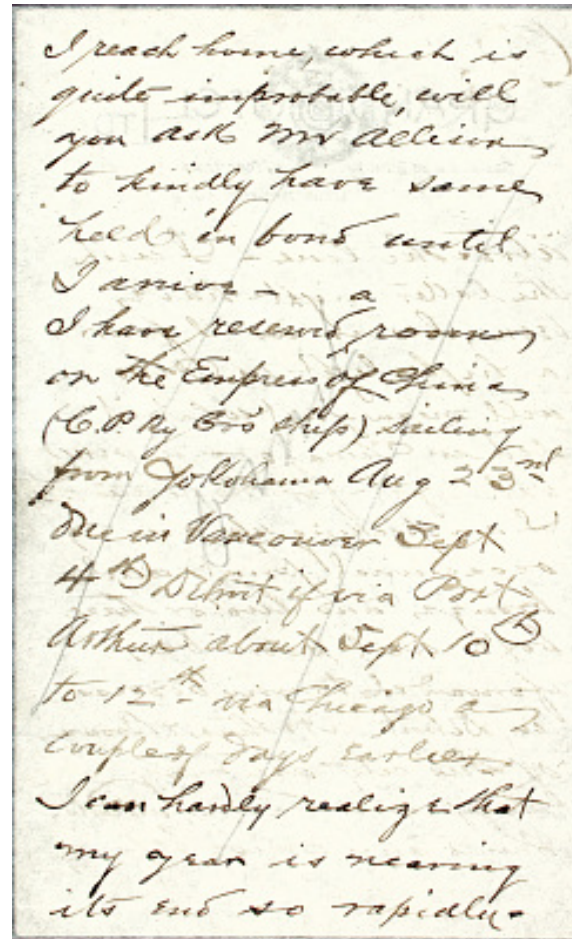 I reach home, which is
quite improbable, will
you ask Mr Allison
to kindly have same
held in bond until
I arrive - a
I have reserved room
on the Empress of China
(C.P. Ry Co's ship) sailing
from Yokohama Aug 23rd
Due in Vancouver Sept
4th Detroit if via Port
Arthur about Sept 10th
to 12th - via Chicago a
couple of days earlier.
I can hardly realize that
my year is nearing
its end so rapidly.